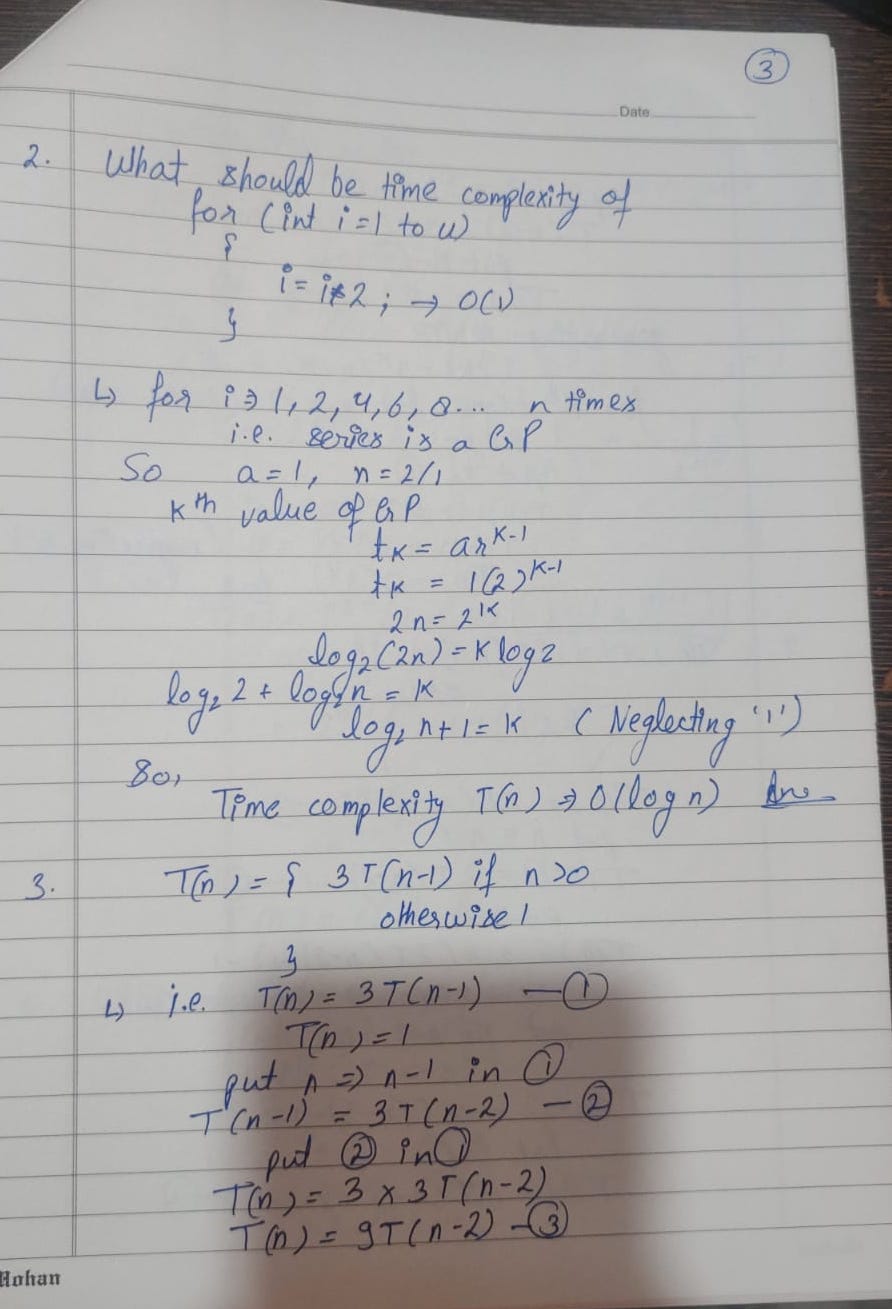 3
Date
2. What should be time complexity of
for (int i=1 to n)
{
i = i*2 ; → O(1)
}
↳ for i ⇒ 1, 2, 4, 6, 8... n times
i.e. series is a GP
So a = 1, r = 2/1
Kth value of GP
tK = ar^K-1
tK = 1(2)^K-1
2n = 2^K
log₂(2n) = K log 2
log₂ 2 + log₂ n = K
log₂ n + 1 = K ( Neglecting '1')
So,
Time complexity T(n) ⇒ O(log n) Ans
3. T(n) = { 3T(n-1) if n>0
otherwise 1
}
↳ i.e. T(n) = 3T(n-1) — ①
T(n) = 1
put n ⇒ n-1 in ①
T(n-1) = 3T(n-2) — ②
put ② in ①
T(n) = 3 x 3T(n-2)
T(n) = 9T(n-2) — ③
Mohan